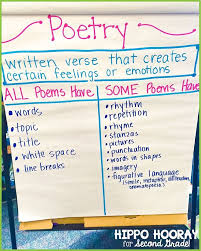 Poetry
Written verse that creates
certain feelings or emotions
ALL Poems Have
• words
• topic
• title
• white space
• line breaks
SOME Poems Have
• rhythm
• repetition
• rhyme
• stanzas
• pictures
• punctuation
• words in shapes
• imagery
• figurative language
(simile, metaphor, alliteration,
onomatopoeia)
HIPPO HOORAY
for Second Grade!